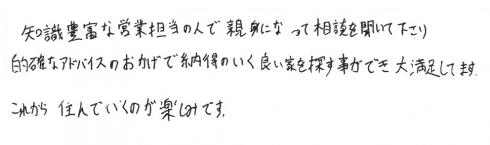 知識豊富な営業担当の人で親身になって相談を聞いて下さり
的確なアドバイスのおかげで納得のいく良い家を探す事ができ大満足してます。
これから住んでいくのが楽しみです。